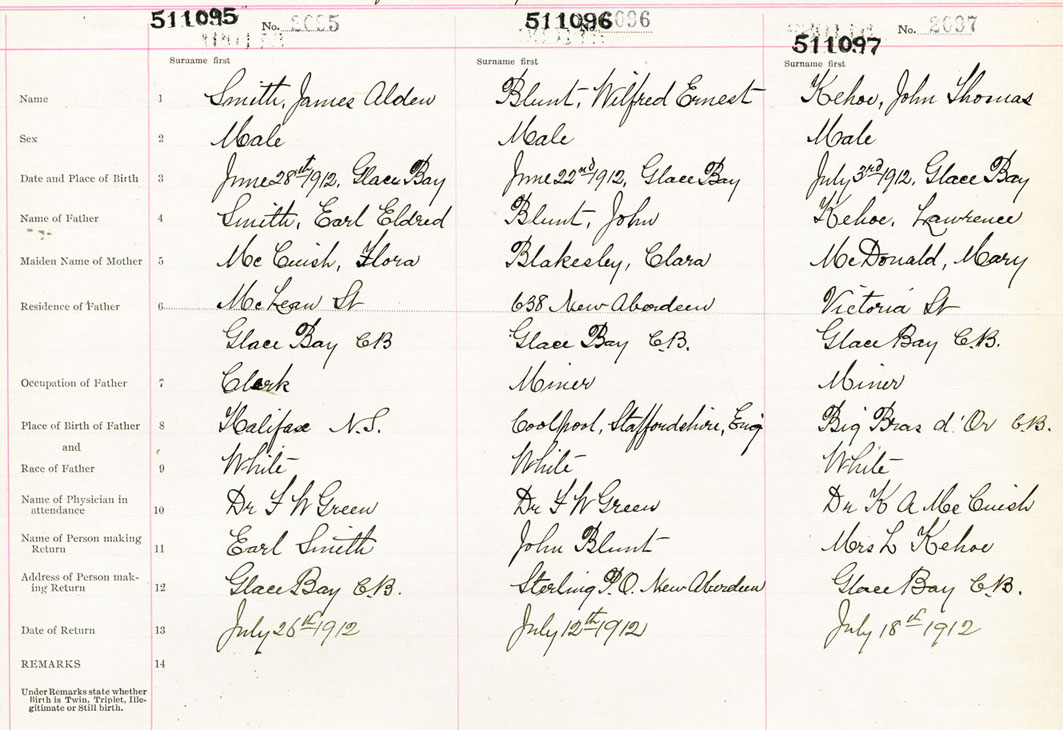 511095 No. 2095 511096 2096 511097 No. 2097
Surname first Surname first Surname first
Name 1 Smith, James Alden Blunt, Wilfred Ernest Kehoe, John Thomas
Sex 2 Male Male Male
Date and Place of Birth 3 June 28th 1912, Glace Bay June 22nd 1912, Glace Bay July 3rd 1912, Glace Bay
Name of Father 4 Smith, Earl Eldred Blunt, John Kehoe, Lawrence
Maiden Name of Mother 5 Mc Cuish, Flora Blakesley, Clara McDonald, Mary
Residence of Father 6 McLean St 638 New Aberdeen Victoria St
Glace Bay CB Glace Bay C.B. Glace Bay C.B.
Occupation of Father 7 Clerk Miner Miner
Place of Birth of Father 8 Halifax N.S. Coolpool, Staffordshire, Eng Big Bras d'Or C.B.
and
Race of Father 9 White White White
Name of Physician in attendance 10 Dr F W Green Dr F W Green Dr K A Mc Cuish
Name of Person making Return 11 Earl Smith John Blunt Mrs L Kehoe
Address of Person mak-ing Return 12 Glace Bay C.B. Sterling P.O. New Aberdeen Glace Bay C.B.
Date of Return 13 July 26th 1912 July 12th 1912 July 18th 1912
REMARKS 14
Under Remarks state whether
Birth is Twin, Triplet, Ille-
gitimate or Still birth.